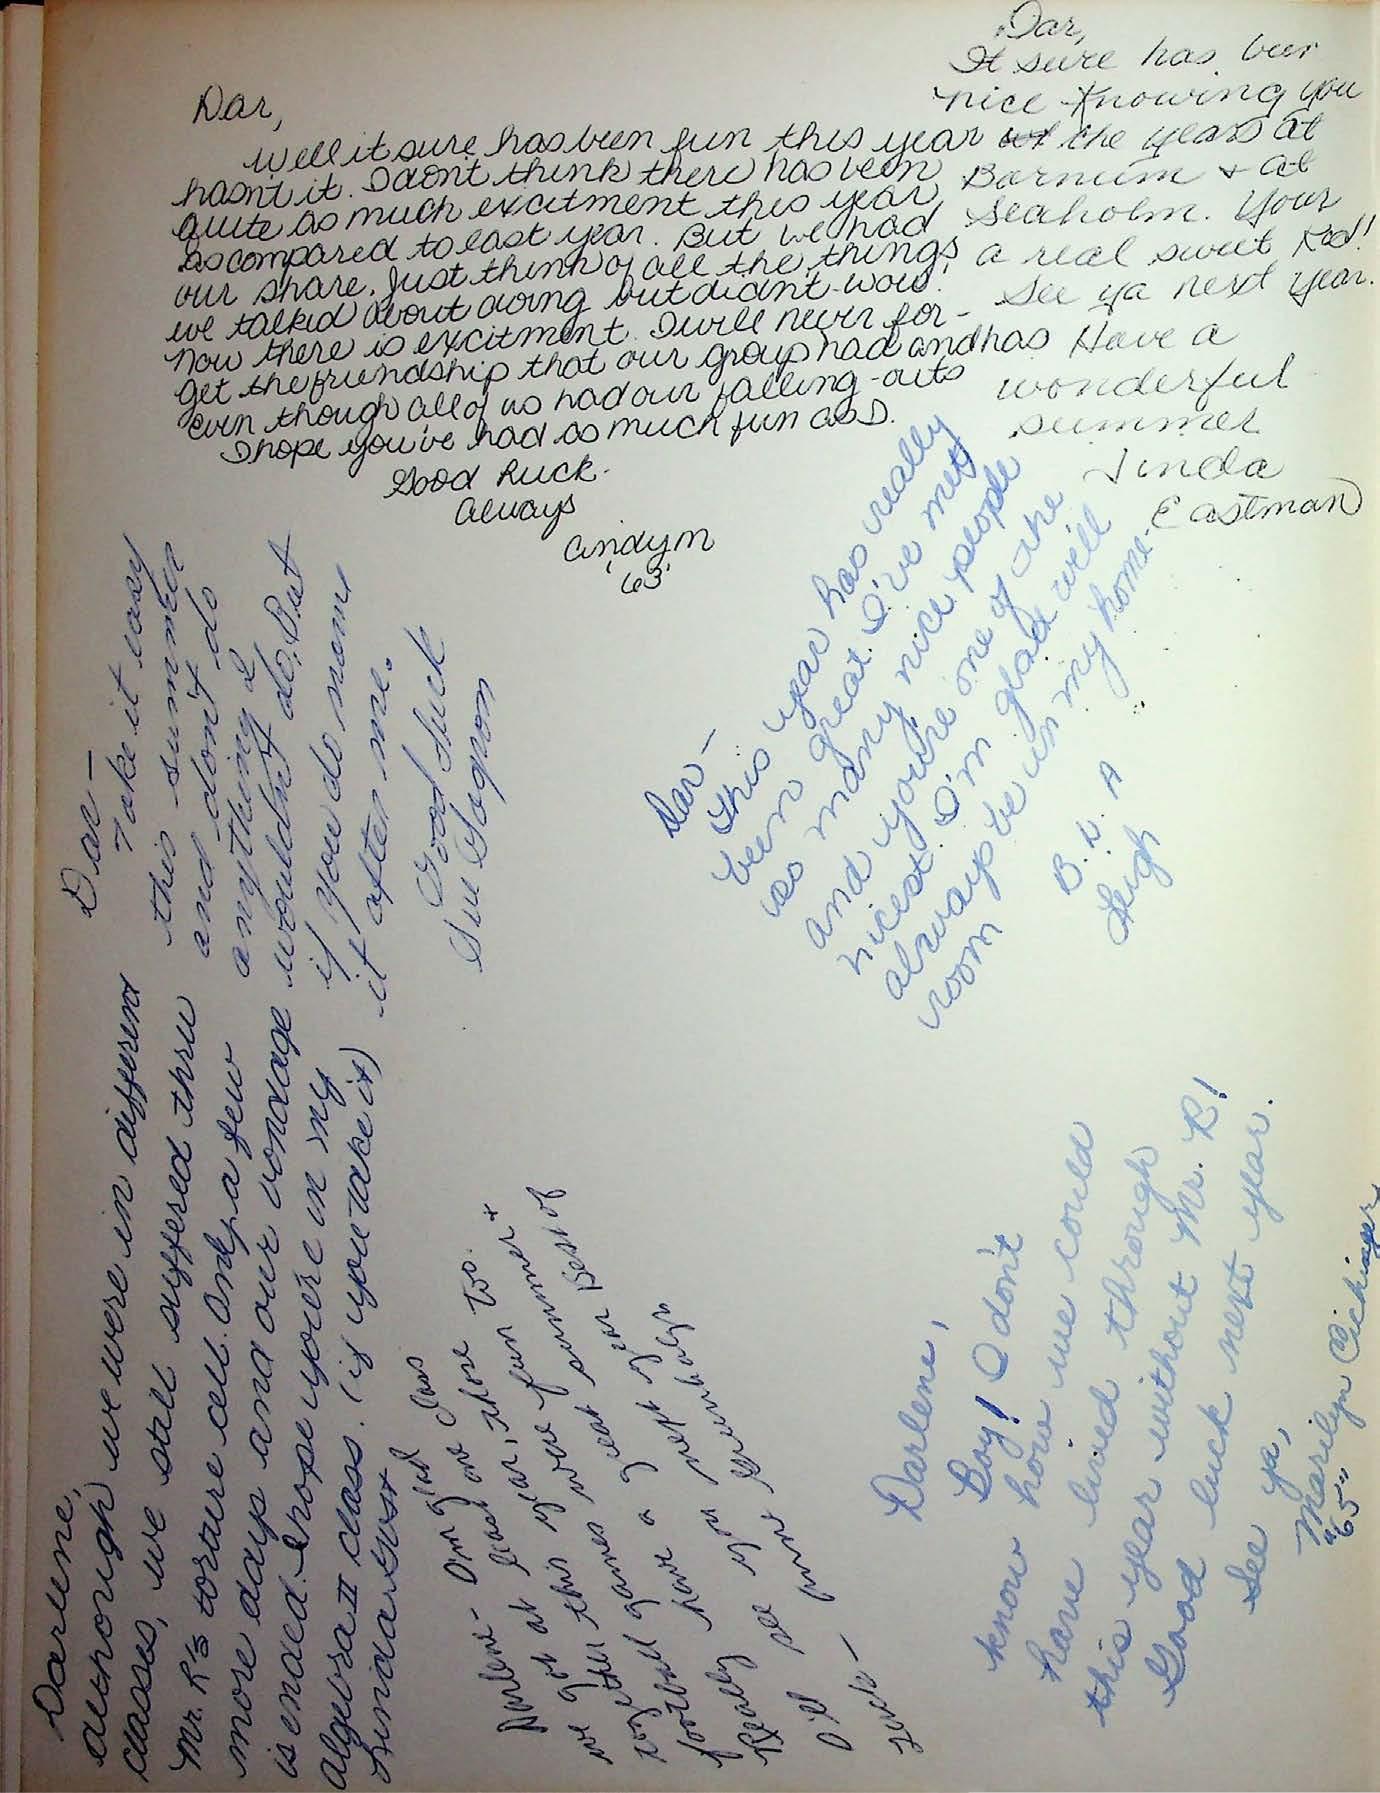 Dar,
Well it sure has been fun this year
hasn't it. I don't think there has been
quite as much excitment this year,
as compared to last year. But we had
our share. Just think of all the things
we talked about doing but didn't-wow!
Now there is excitment. I will never for-
get the friendship that our group had and has
even though all of us had our falling-outs
I hope you've had as much fun as I.
Good Luck.
Always
Cindy M
'63'
Dar,
It sure has been
nice knowing you
the years at
Barnum & at
Seaholm. Your
a real sweet kid!
See ya next year.
Have a
wonderful
summer
Linda
Eastman
Dar—
Take it easy
this summer
and don't do
anything I
wouldn't do. But
if you do name
it after me.
Good Luck
Sue
Dar—
This year has really
been great. I've met
so many nice people
and you're one of the
nicest. I'm glad will
always be in my home-
room
B. L. A
Leigh
Darlene,
although we were in different
classes, we still suffered thru
Mr. R's torture cell. Only a few
more days and our bondage
is ended. I hope you're in my
algebra II class. (if you take it)
Linda
Darlene- I'm glad
we got at least one class
together this year, more
games were fun too.
football this summer +
have a great year
Really next year Best of
I'll see you
Luck—
Darlene,
Boy! I don't
know how we could
have lived through
this year without Mr. R!
Good luck next year.
See ya,
Marilyn
"65"